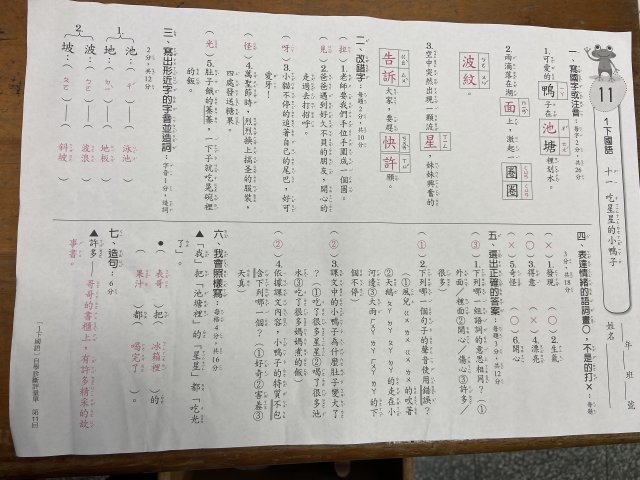 11
1下國語
十一 吃星星的小鴨子
年 班 號
姓名
一、寫國字或注音：每字2分，共26分
1.可愛的鴨子在池塘裡划水。
2.雨滴落在湖面上，激起一圈圈
波紋。
3.空中突然出現一顆流星，妹妹興奮的
告訴大家，要趕快許願。
二、改錯字：每題2分，共10分
1.老師要我們手位手圍成一個圈。
2.爸爸遇到好久不貝的朋友，開心的
走過去打招呼。
3.小貓不停的追著自己的尾巴，好可
愛牙！
4.萬聖節時，
四處發送糖果。
5.肚子餓的
的飯。
三、寫出形近字的字音並造詞：字音1分，造詞
2分，共12分
1.池：（ㄔˊ）（泳池）
地：（ㄉㄧˋ）（地板）
2.波：（ㄆㄛ）（波浪）
坡：（ㄆㄛ）（斜坡）
四、表達情緒的語詞畫○，不是的打×：每題
3分，共18分
（×）1.發現 （○）2.生氣
（○）3.得意 （×）4.漂亮
（×）5.奇怪 （○）6.開心
五、選出正確的答案：每題3分，共12分
（③）1.下列哪一組語詞的意思相同？（①
外面／裡面②開心／傷心③許多／
很多）
（②）2.下列哪一個句子的聲音使用錯誤？
（①風兒ㄆㄆ的吹著
②天鵝ㄆㄆ的走在小
河邊③大雨的下
個不停）
（②）3.課文中的小鴨子為什麼肚子變大了
？（①吃了很多星星②喝了很多池
水③吃了很多媽媽煮的飯）
（②）4.依據課文內容，小鴨子的特質不包
含下列哪一個？（①好奇②害羞③
天真）
六、我會照樣寫：每格4分，共16分
▲「我」把「池塘裡」的「星星」都「吃光
了」。
●（表哥）把（冰箱裡）的
（果汁）都（喝完了）。
七、造句：6分
▲許多——哥哥的書櫃上，有許多精采的故
事書。
（1下國語）自學診斷評量單 第11回